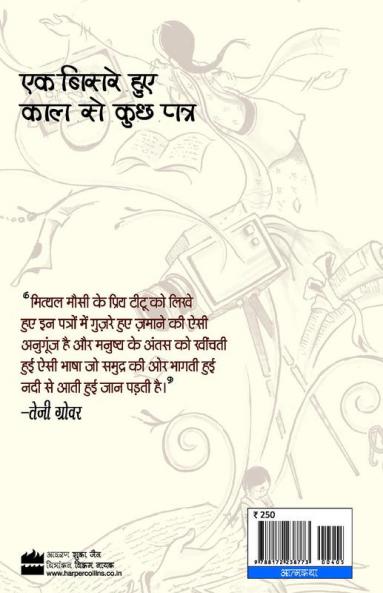 एक बिसरे हुए
काल से कुछ पात्र
“मित्थल मौसी के प्रिय टीटू को लिखे
हुए इन पत्रों में गुज़रे हुए ज़माने की ऐसी
अनुगूंज है और मनुष्य के अंतस को खींचती
हुई ऐसी भाषा जो समुद्र की ओर भागती हुई
नदी से आती हुई जान पड़ती है।”
–तेजी ग्रोवर
आवरण शुका जैन
चित्रांकन विक्रम नायक
www.harpercollins.co.in
₹ 250
9 788172 238773
00405
आत्मकथा